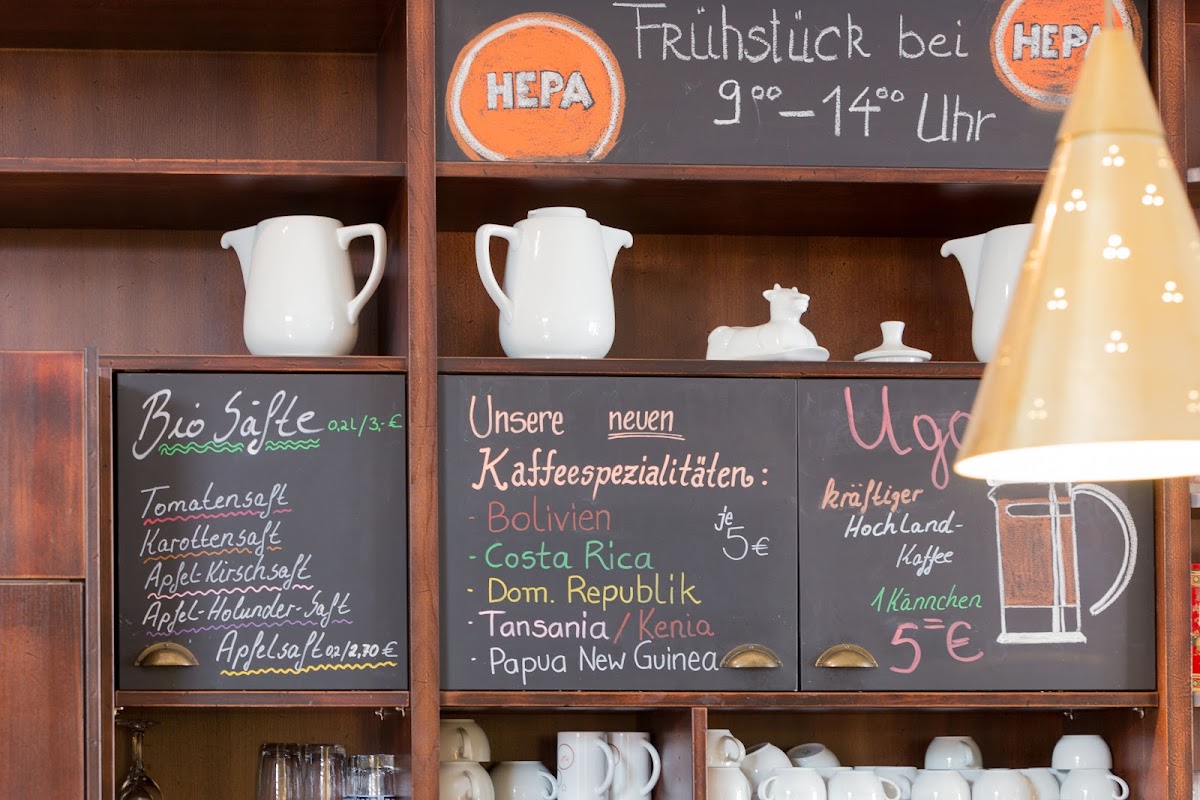 HEPA
Frühstück bei
9⁰⁰ – 14⁰⁰ Uhr
HEPA
Bio Säfte 0,2l/3,-€
Tomatensaft
Karottensaft
Apfel-Kirschsaft
Apfel-Holunder-Saft
Apfelsaft 0,2/2,70 €
Unsere neuen
Kaffeespezialitäten:
- Bolivien
je 5 €
- Costa Rica
- Dom. Republik
- Tansania / Kenia
- Papua New Guinea
kräftiger
Hochland-
Kaffee
1 Kännchen
5= €